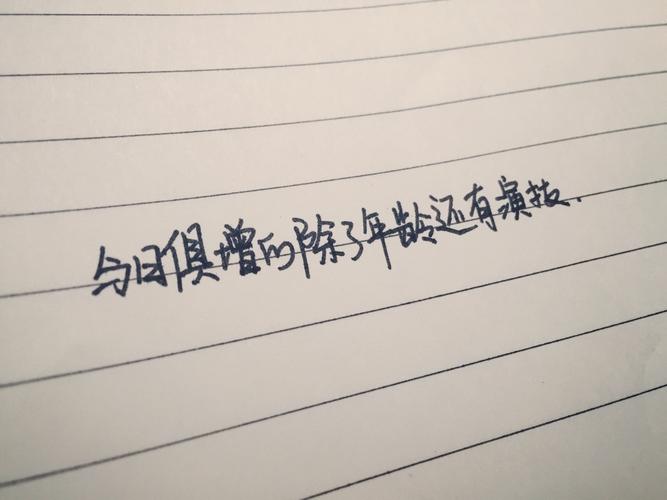 与日俱增的除了年龄还有演技.